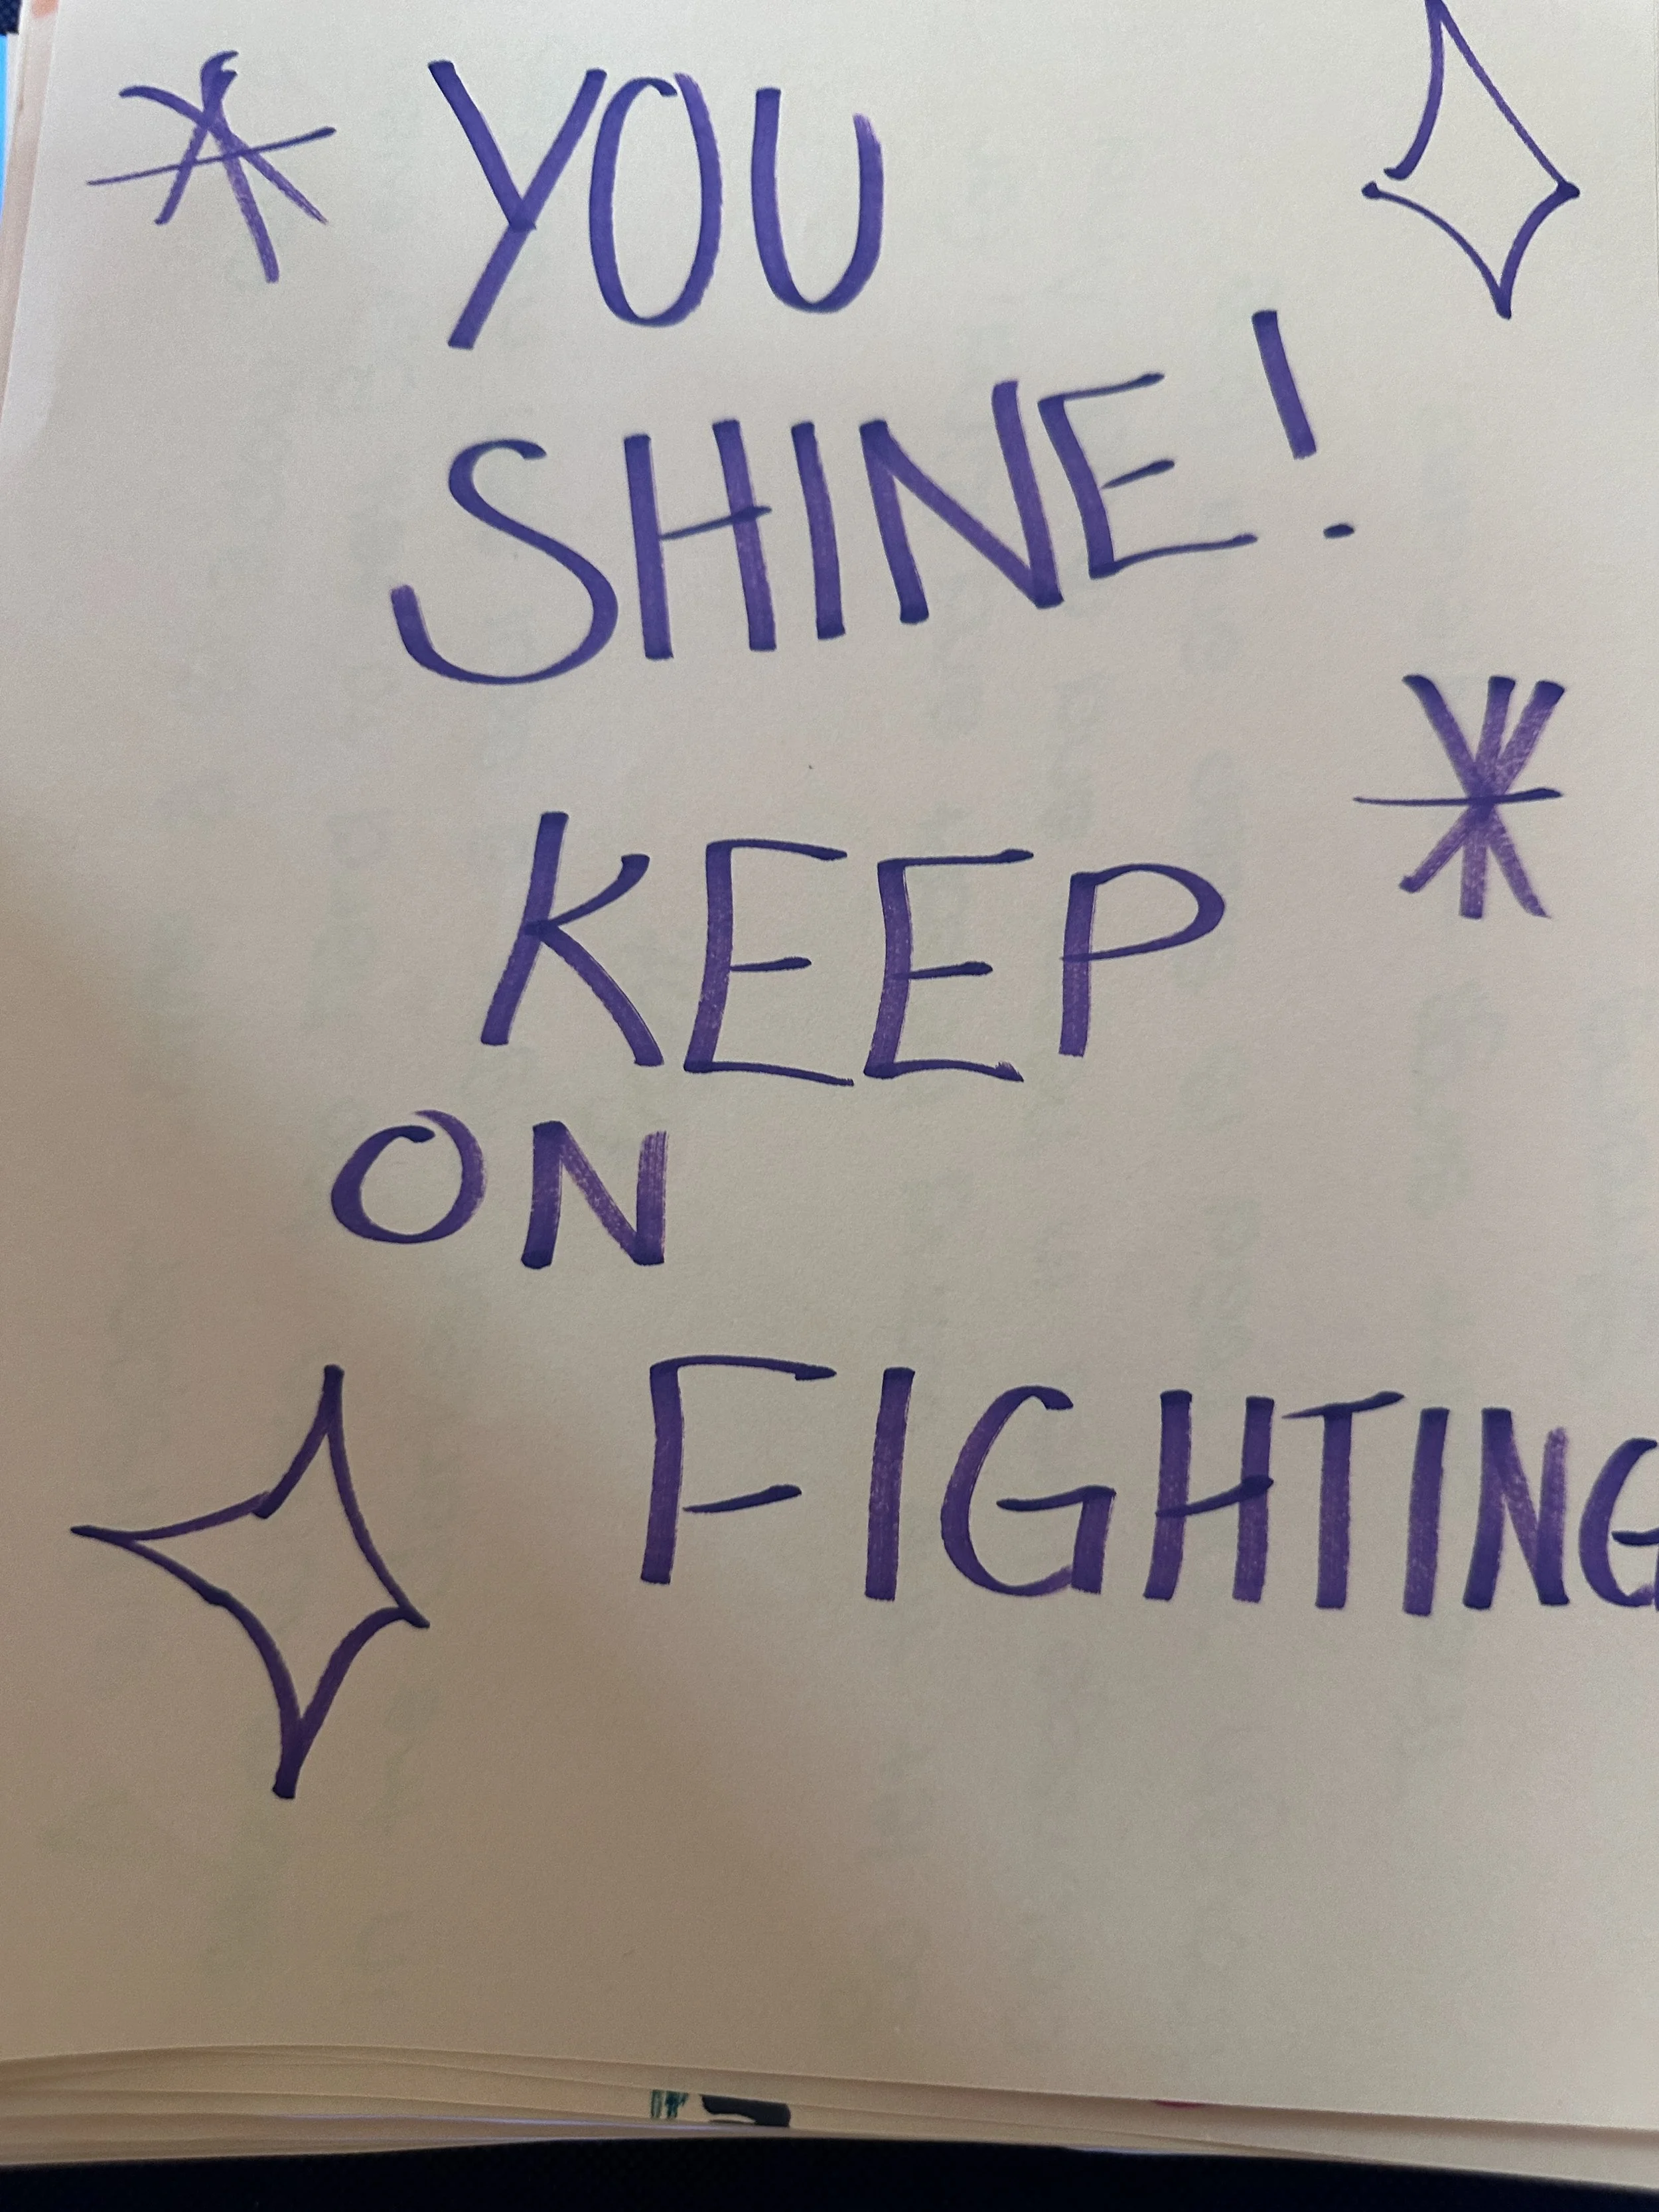 YOU
SHINE!
KEEP
ON
FIGHTING